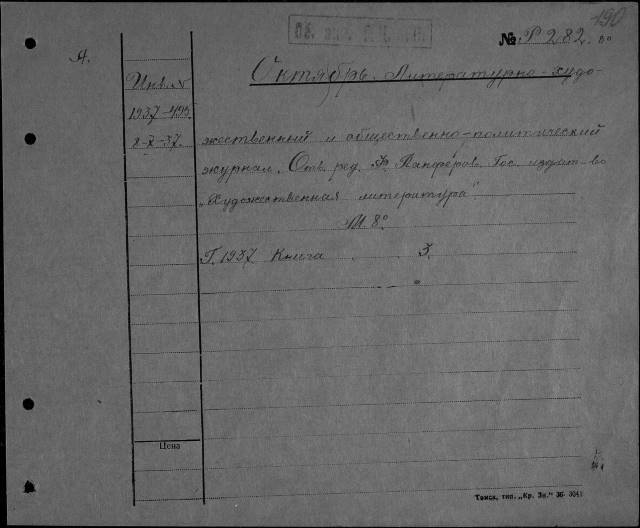 190
№ Р 282.
А.
Инв. №
Октябрь. Литературно-худо-
1937-495
8-X-37.
жественный и общественно-политический
журнал. Отв. ред. Ф. Панферов. Гос. издат-во
„Художественная литература".
М. 8°
Г. 1937 Книга . . 3.
Цена
Томск, тип. „Кр. Зн." 36-3041